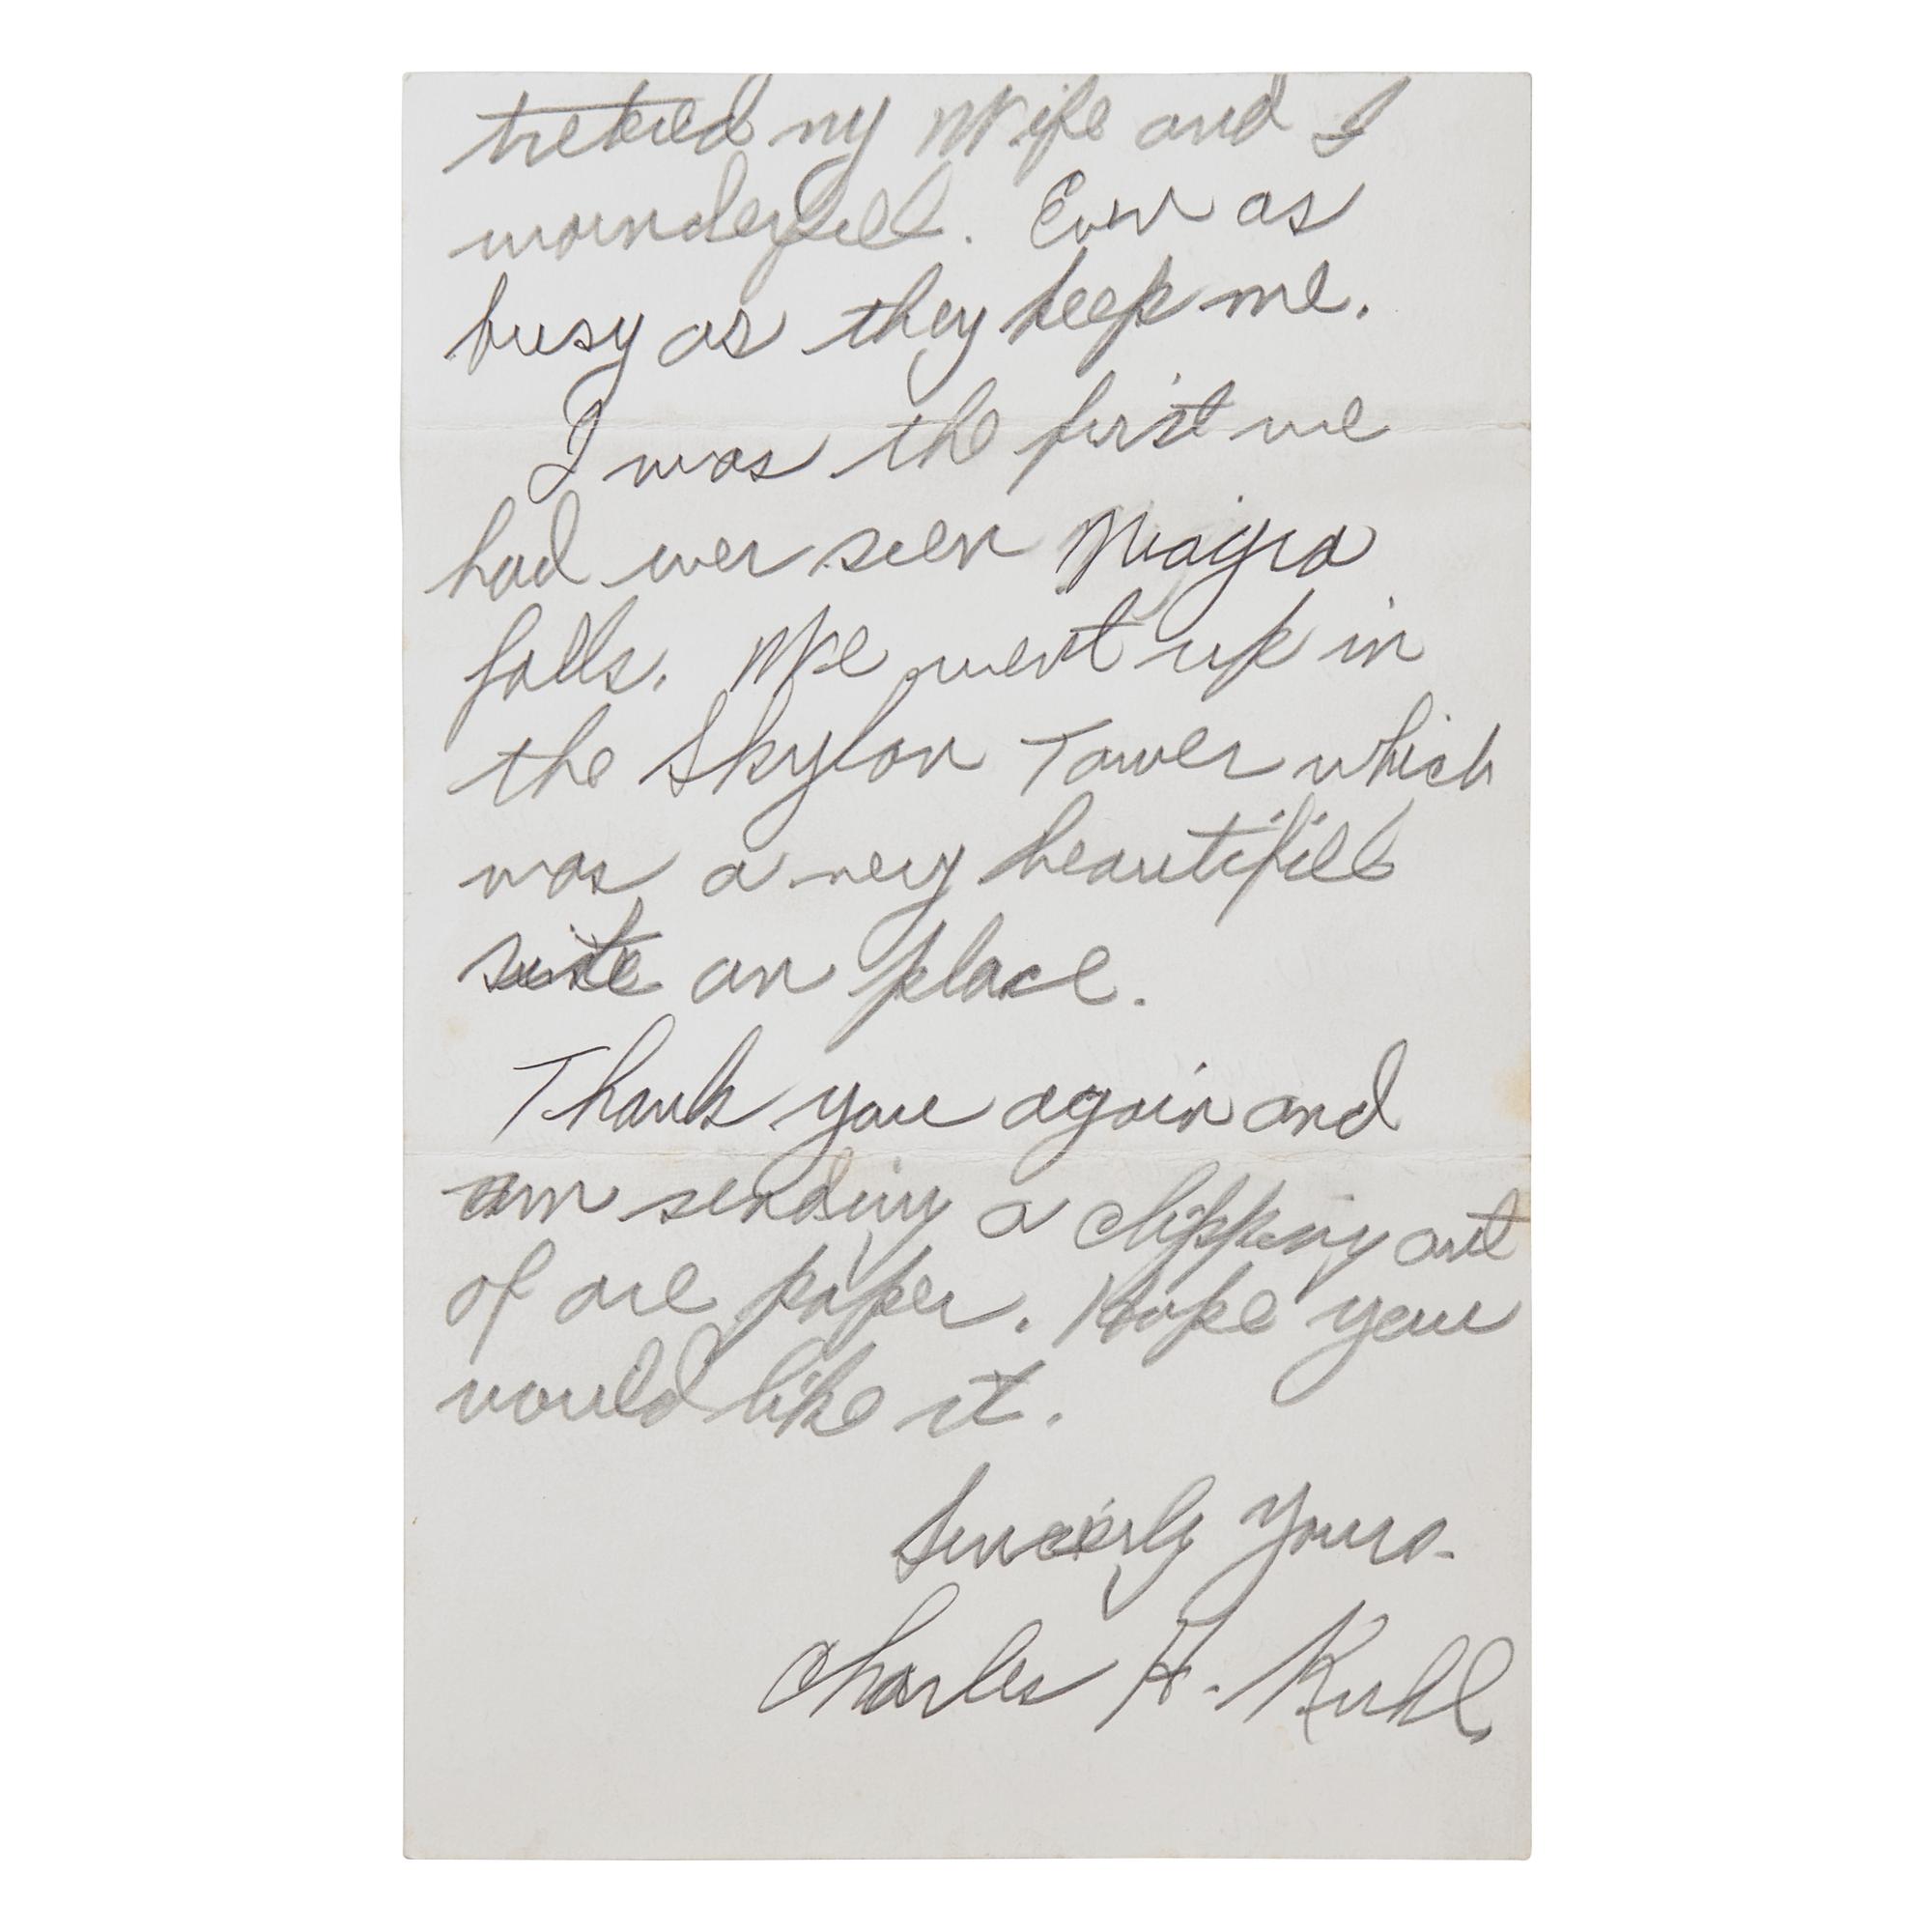 treted my Wife and I
wounderfull. Even as
busy as they keep me.
I was the first we
had ever seen Niagra
falls. We went up in
the Skylon Tower which
was a very beautifill
site an place.
Thank you again and
am sending a clipping out
of are paper. Hope you
would like it.
Sincerly Yours.
Charles H. Kuhl